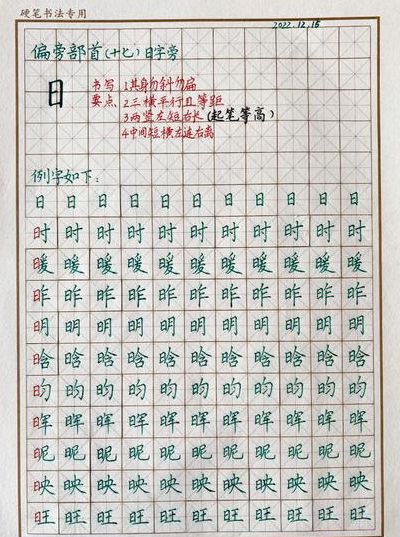 硬笔书法专用
2022.12.15
偏旁部首(十七)日字旁
日
书写 1其身勿斜勿扁
要点 2三横平行且等距
3两竖左短右长(起笔等高)
4中间短横左连右离
例字如下:
日日日日日日日日日日日
时时时时时时时时时时时
暖暖暖暖暖暖暖暖暖暖暖
昨昨昨昨昨昨昨昨昨昨昨
明明明明明明明明明明明
晗晗晗晗晗晗晗晗晗晗晗
昀昀昀昀昀昀昀昀昀昀昀
晖晖晖晖晖晖晖晖晖晖晖
昵昵昵昵昵昵昵昵昵昵昵
映映映映映映映映映映映
旺旺旺旺旺旺旺旺旺旺旺